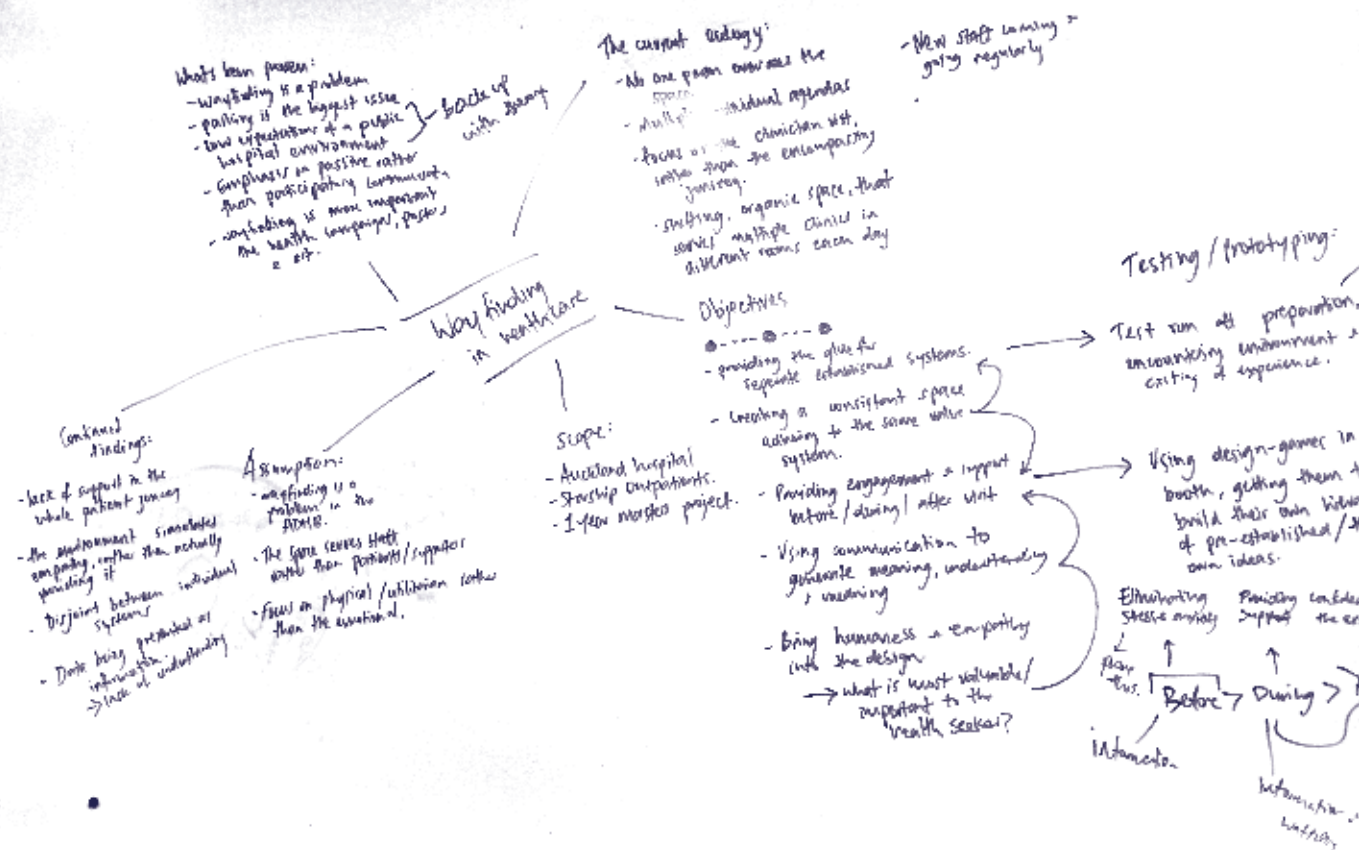 What's been proven:
- Wayfinding is a problem
- parking is the biggest issue
- Low expectations of a public
hospital environment
} back up
with
- Emphasis on passive rather
than participatory
- wayfinding is more important
the health campaigns, posters
& art.
The current
- No one person oversees the
space.
- individual agendas
- focus on the clinician visit,
rather than the encompassing
journey.
- shifting, organic space, that
serves multiple clinics in
different rooms each day
- New staff coming &
going regularly
Wayfinding
in healthcare
findings:
- lack of support in the
whole patient journey
- the environment simulates
empathy, rather than actually
providing it
- Disjoint between individual
systems
- Data being presented as
information
-> lack of understanding
Assumption:
- wayfinding is a
problem in the
ADHB.
- The space serves staff
rather than patients/supporters
- Focus on physical/utilitarian rather
than the emotional.
Scope:
- Auckland hospital
- Starship Outpatients.
- 1 year masters project.
Objectives
- providing the glue for
separate established systems.
- Creating a consistant space
adhering to the same value
system.
- Providing engagement & support
before/during/after visit
- Using communication to
generate meaning, understanding
&
- Bring humaness & empathy
into the design
-> what is most valuable/
important to the
health seeker?
Testing/prototyping:
Test run of preparation,
encountering environment &
exiting of experience.
Using design-games in
booth, getting them
build their own
of pre-established/
own ideas.
Eliminating
stress & anxiety
Providing
support
Before > During >